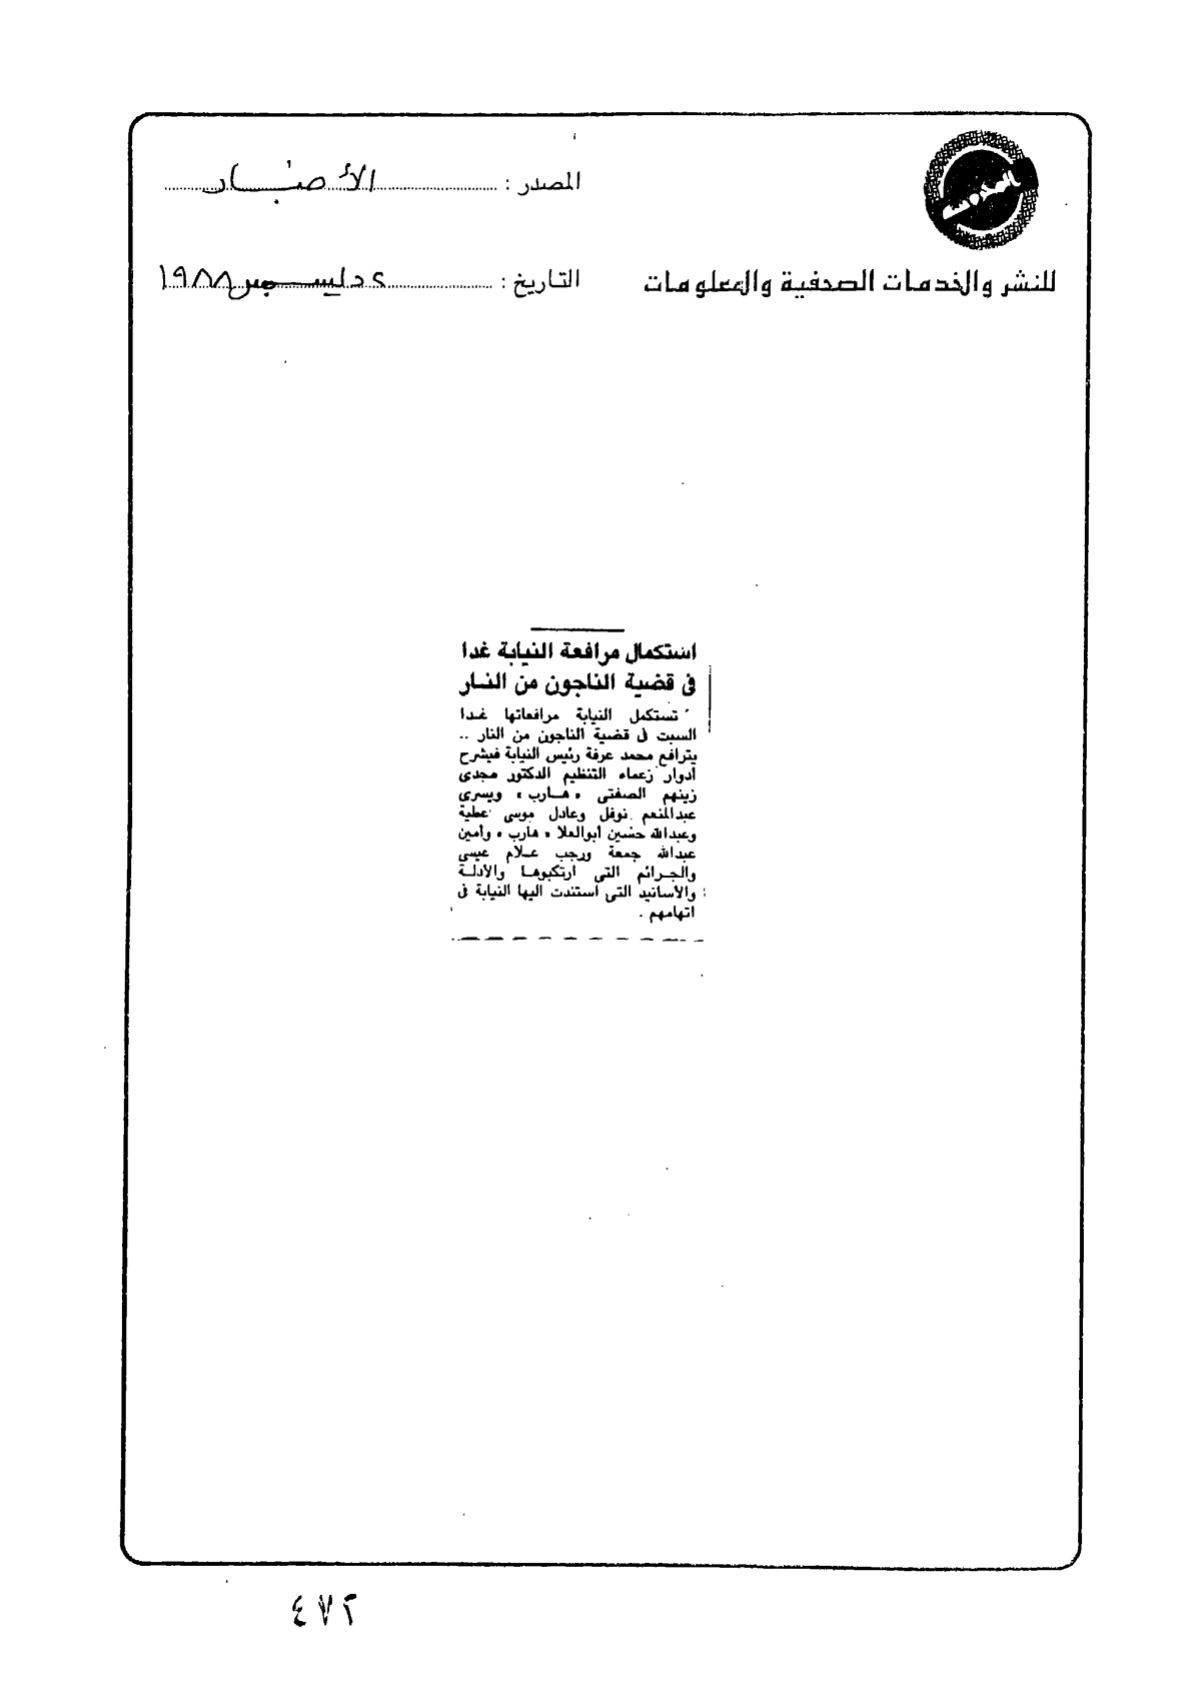 المصدر : الأخبار
للنشر والخدمات الصحفية والمعلومات
التاريخ : ٢ ديسمبر ١٩٨٨
استكمال مرافعة النيابة غدا
فى قضية الناجون من النــار
تستكمل النيابة مرافعاتها غـدا
السبت فى قضية الناجون من النار ..
يترافع محمد عرفة رئيس النيابة فيشرح
أدوار زعماء التنظيم الدكتور مجدى
زينهم الصفتى « هـارب » ويسرى
عبدالمنعم نوفل وعادل موسى عطية
وعبدالله حسين أبوالعلا « هارب » وأمين
عبدالله جمعة ورجب عـلام عيسى
والجـرائم التى ارتكبوهـا والأدلـة
والأسانيد التى استندت اليها النيابة فى
اتهامهم .
٤٧٢